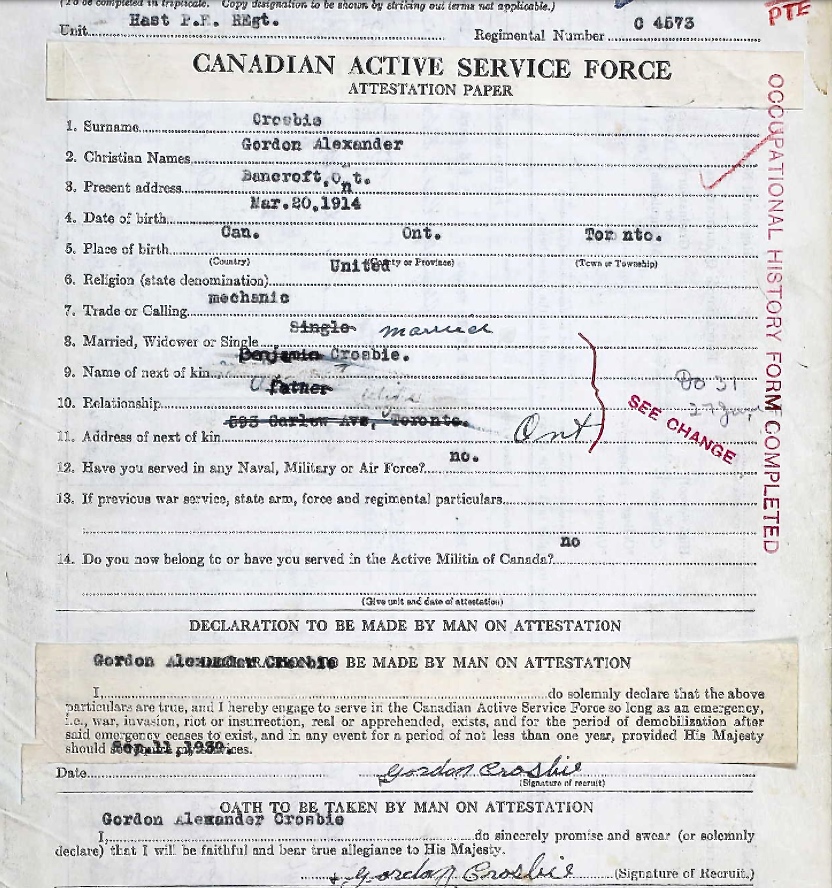 (To be completed in triplicate. Copy designation to be shown by striking out terms not applicable.)
PTE
Hast P.E. REgt.
C 4573
Unit
Regimental Number
CANADIAN ACTIVE SERVICE FORCE
ATTESTATION PAPER
Crosbie
1. Surname
Gordon Alexander
2. Christian Names
Bancroft, Ont.
3. Present address
Mar.20,1914
4. Date of birth
Can. Ont. Tor nto.
5. Place of birth
(Country) (County or Province) (Town or Township)
United
6. Religion (state denomination)
mechanic
7. Trade or Calling
Single married
8. Married, Widower or Single
Benjamin Crosbie.
9. Name of next of kin
father
10. Relationship
593 Carlow Ave, Toronto.
11. Address of next of kin Ont
SEE CHANGE
DO 31
no.
12. Have you served in any Naval, Military or Air Force?
13. If previous war service, state arm, force and regimental particulars
no
14. Do you now belong to or have you served in the Active Militia of Canada?
(Give unit and date of attestation)
OCCUPATIONAL HISTORY FORM COMPLETED
DECLARATION TO BE MADE BY MAN ON ATTESTATION
Gordon Alexander Crosbie TO BE MADE BY MAN ON ATTESTATION
I, do solemnly declare that the above
particulars are true, and I hereby engage to serve in the Canadian Active Service Force so long as an emergency,
i.e., war, invasion, riot or insurrection, real or apprehended, exists, and for the period of demobilization after
said emergency ceases to exist, and in any event for a period of not less than one year, provided His Majesty
should Sep.11,1939. services.
Date Gordon Crosbie
(Signature of recruit)
OATH TO BE TAKEN BY MAN ON ATTESTATION
Gordon Alexander Crosbie
I, do sincerely promise and swear (or solemnly
declare) that I will be faithful and bear true allegiance to His Majesty.
Gordon Crosbie (Signature of Recruit.)